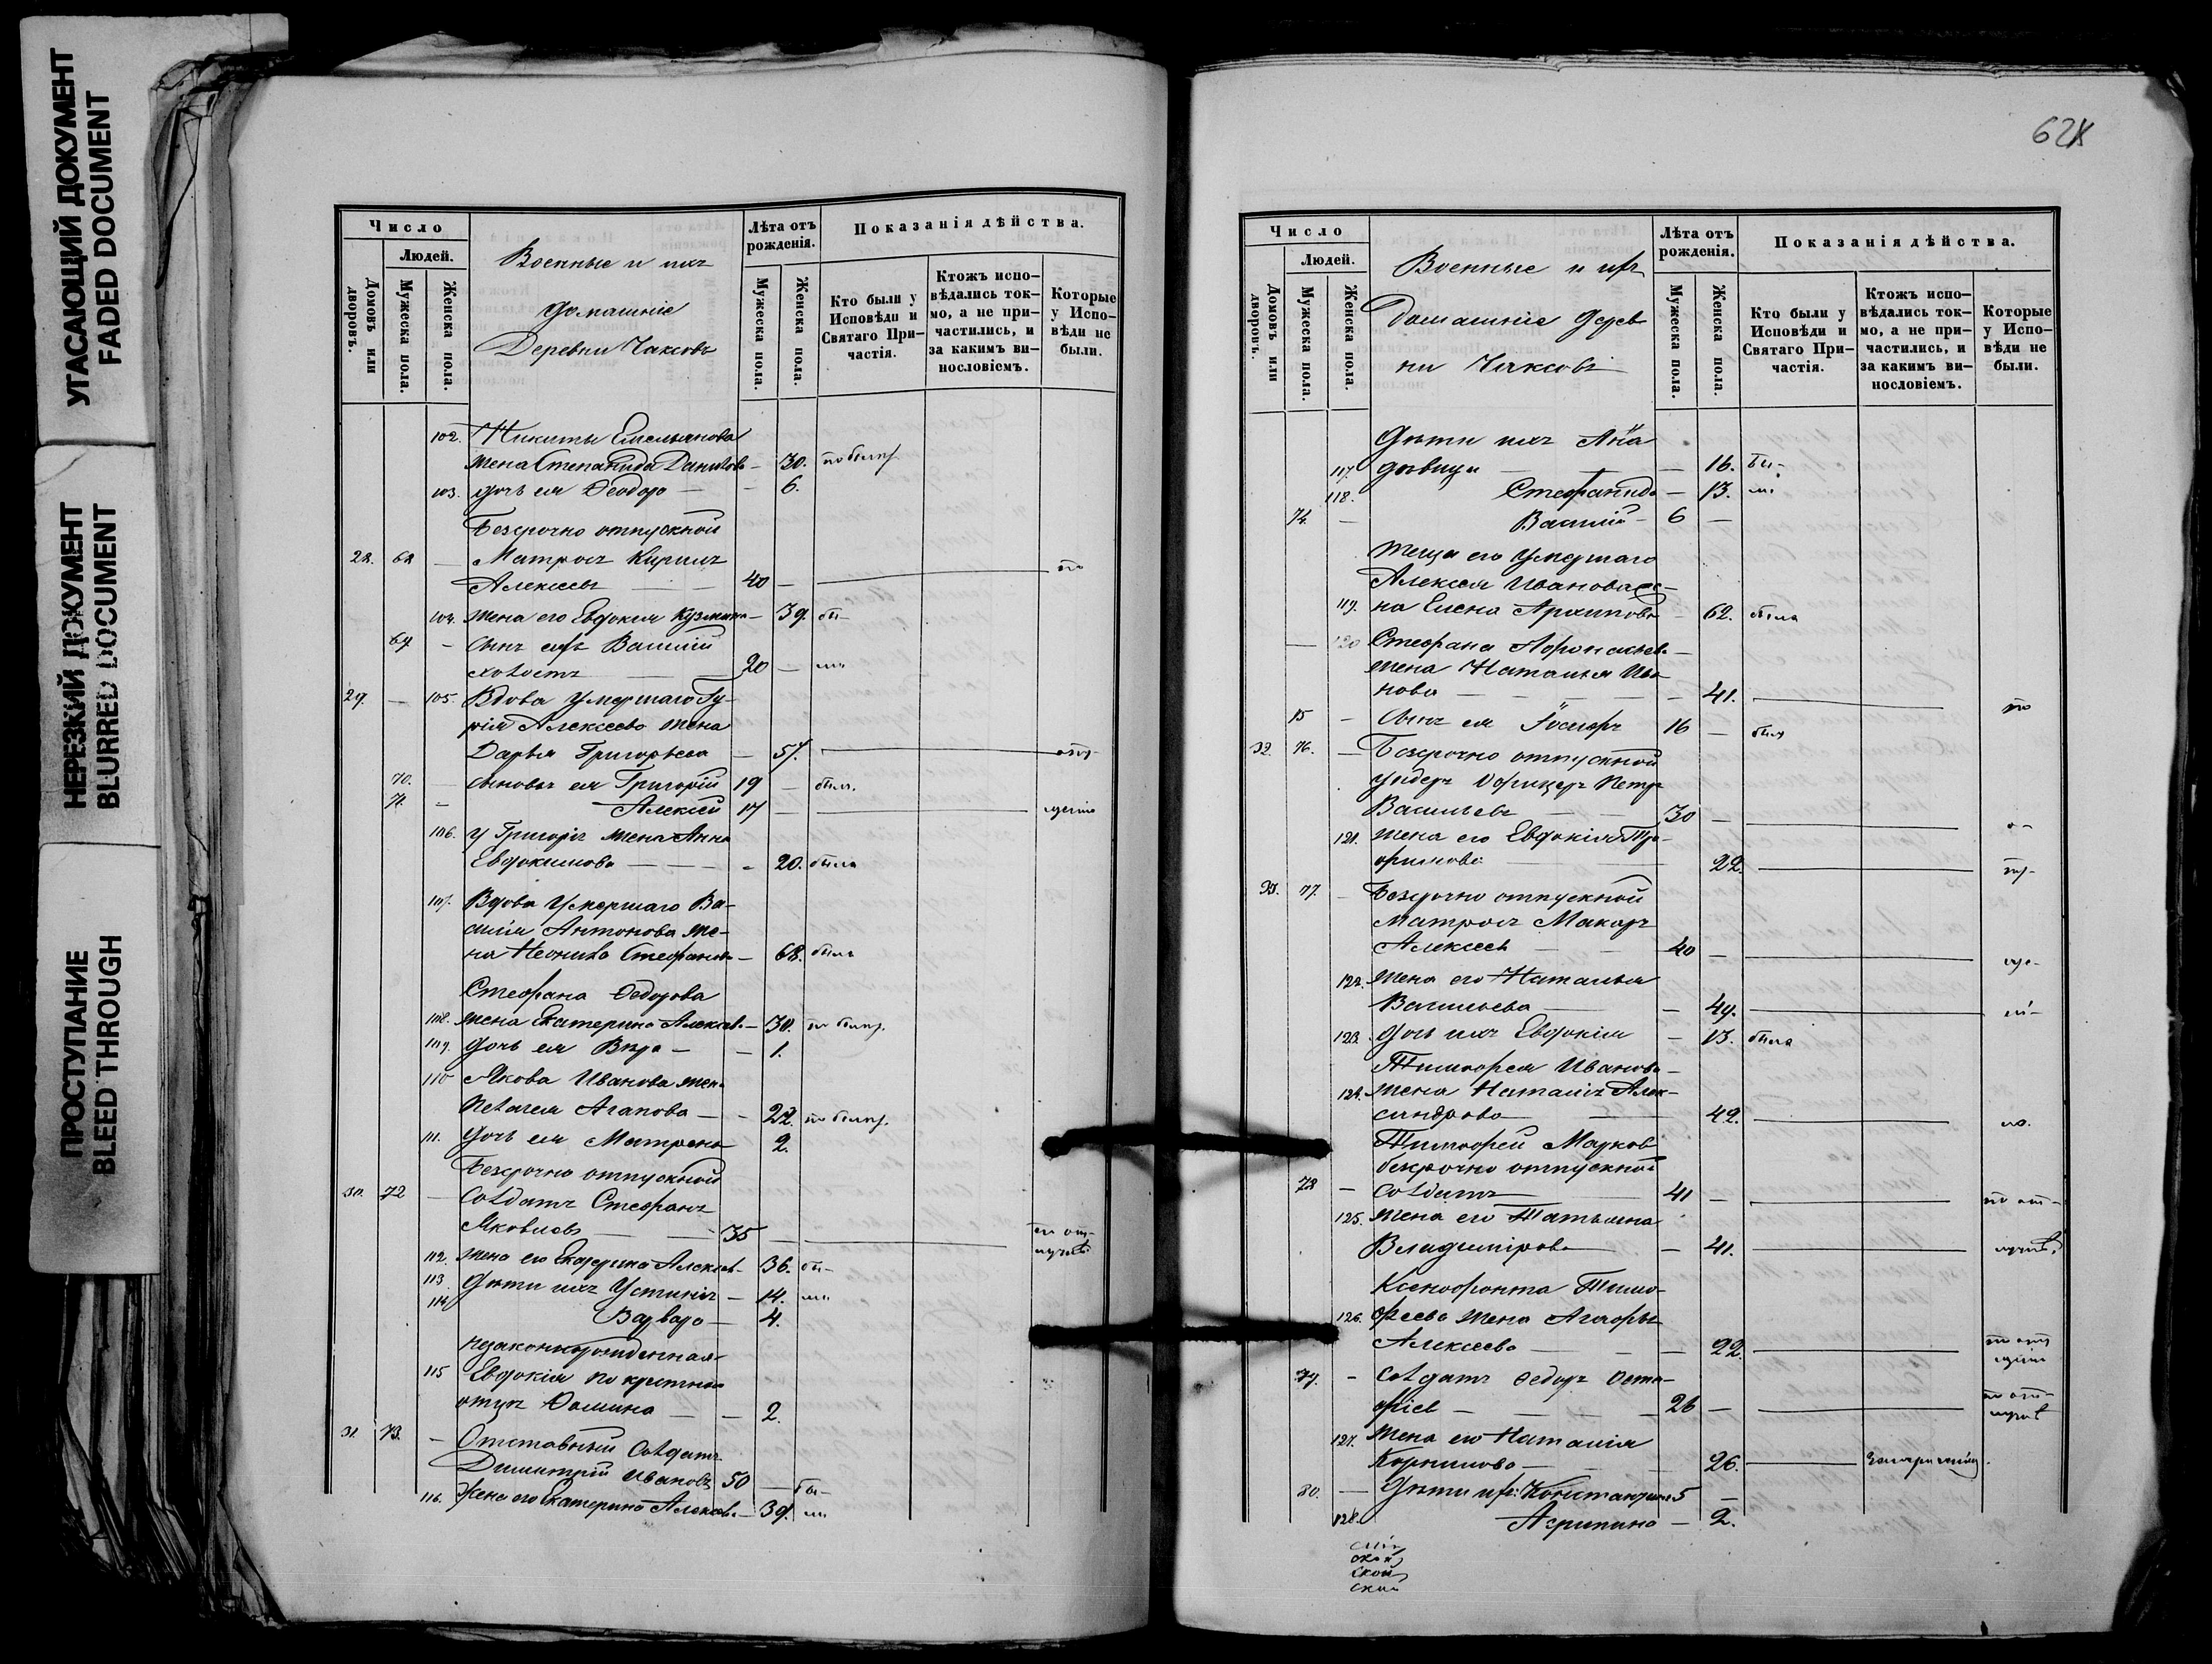 УГАСАЮЩИЙ ДОКУМЕНТ
FADED DOCUMENT
НЕРЕЗКИЙ ДОКУМЕНТ
BLURRED DOCUMENT
ПРОСТУПАНИЕ
BLEED THROUGH
Число
Людей.
Домовъ или дворовъ.
Мужеска пола.
Женска пола.
Военные и ихъ
домашніе
Деревни
Лѣта отъ рожденія.
Мужеска пола.
Женска пола.
Показанія дѣйства.
Кто были у Исповѣди и Святаго Причастія.
Ктожъ исповѣдались токмо, а не причастились, и за какимъ винословіемъ.
Которые у Исповѣди не были.
102. Никиты Емельянова
жена Степанида Данилова — 30.
103. дочь ея Ѳеодора — — 6.
Безсрочно отпускной
28. 68 — Матросъ Кирилъ
Алексеевъ — — 40 —
104. жена его Евдокія Кузмина — 39. бы-
69 — сынъ ихъ Василій
холостъ — — 20 — ли
29. — 105. Вдова умершаго Гу-
рія Алексеева жена
Дарья Григорьева — 57.
70. — сыновья ея Григорій 19 — былъ
71. — Алексей 17 —
106. у Григорія жена Анна
Евдокимова — — - 20. была
107. Вдова умершаго Ва-
силія Антонова же-
на Неонила Стефанова — 68. была
Стефана Ѳедорова
108. жена Екатерина Алексеева — 30.
109. дочь ея Вѣра — — 1.
110 Якова Иванова жена
Пелагея Агапова — — 22.
111. дочь ея Матрена 2.
Безсрочно отпускной
30. 72 — Солдатъ Стефанъ
Яковлевъ — — 35 —
112. жена его Екатерина Алексеев. 36. бы-
113 дѣти ихъ Устинія — 14. ли
114 Варвара — 4.
незаконнорожденная
115 Евдокія по крестном
отцу Ѳомина — — 2.
31. 73. — Отставный Солдатъ
Димитрій Ивановъ 50 — бы-
116. жена его Екатерина Алексеев. — 39. ли
628
Число
Людей.
Домовъ или дворовъ.
Мужеска пола.
Женска пола.
Военные и ихъ
Домашніе Дерев
ни
Лѣта отъ рожденія.
Мужеска пола.
Женска пола.
Показанія дѣйства.
Кто были у Исповѣди и Святаго Причастія.
Ктожъ исповѣдались токмо, а не причастились, и за какимъ винословіемъ.
Которые у Исповѣди не были.
Дѣти ихъ Анна
117. дѣвица — — — 16. бы-
118. Стефанида — 13. ли
74. — Василій — 6 —
теща его умершаго
Алексея Иванова же-
119. на Елена Архипова — 62. была
— 120 Стефана Афонасьева
жена Наталья Ива
нова — — 41.
75 — сынъ ея Іосифъ 16 — былъ
32. 76. — Безсрочно отпускной
ундеръ Офицеръ Петръ
Васильевъ — — 30 —
121. жена его Евдокія Тро-
фимова 22.
33. 77. — Безсрочно отпускной
матросъ Макаръ
Алексеев — — 40 —
122. жена его Наталья
Васильева — 49.
123. дочь ихъ Евдокія — 13. была
Тимофея Иванова
124. жена Наталія Алек-
сандрова — 42.
Тимофей Марков
безсрочно отпускной
78 — солдатъ — 41 —
125. жена его Татьяна
Владимірова — — 41.
Ксенофонта Тимо-
126. феева жена Агафья
Алексеева — — 22.
79. — солдатъ Ѳедоръ Оста-
фіев — — — 26 —
127. жена его Наталія
Корнилова — — 26.
80. — Дѣти ихъ: Константинъ 5 —
128. Агрипина — 2.
ской
ской